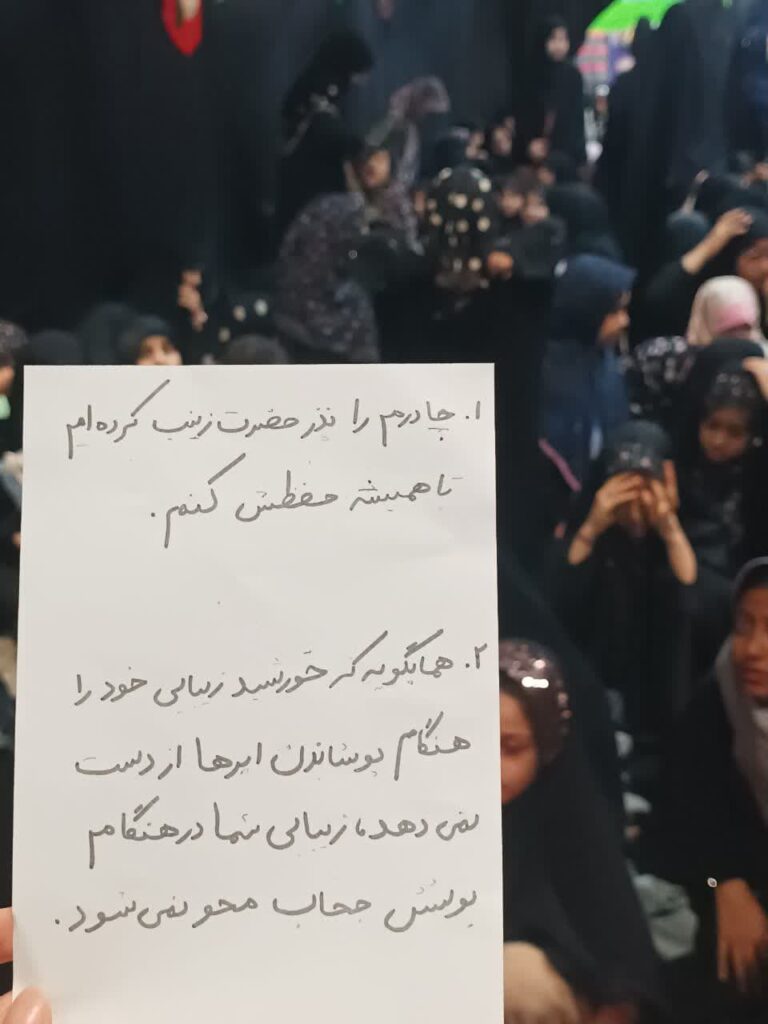 ۱. چادرم را نذر حضرت زینب کرده‌ام
تا همیشه حفظش کنم.
۲. همانگونه که خورشید زیبایی خود را
هنگام پوشاندن ابرها از دست
نمی دهد، زیبایی شما در هنگام
پوشش حجاب محو نمی شود.